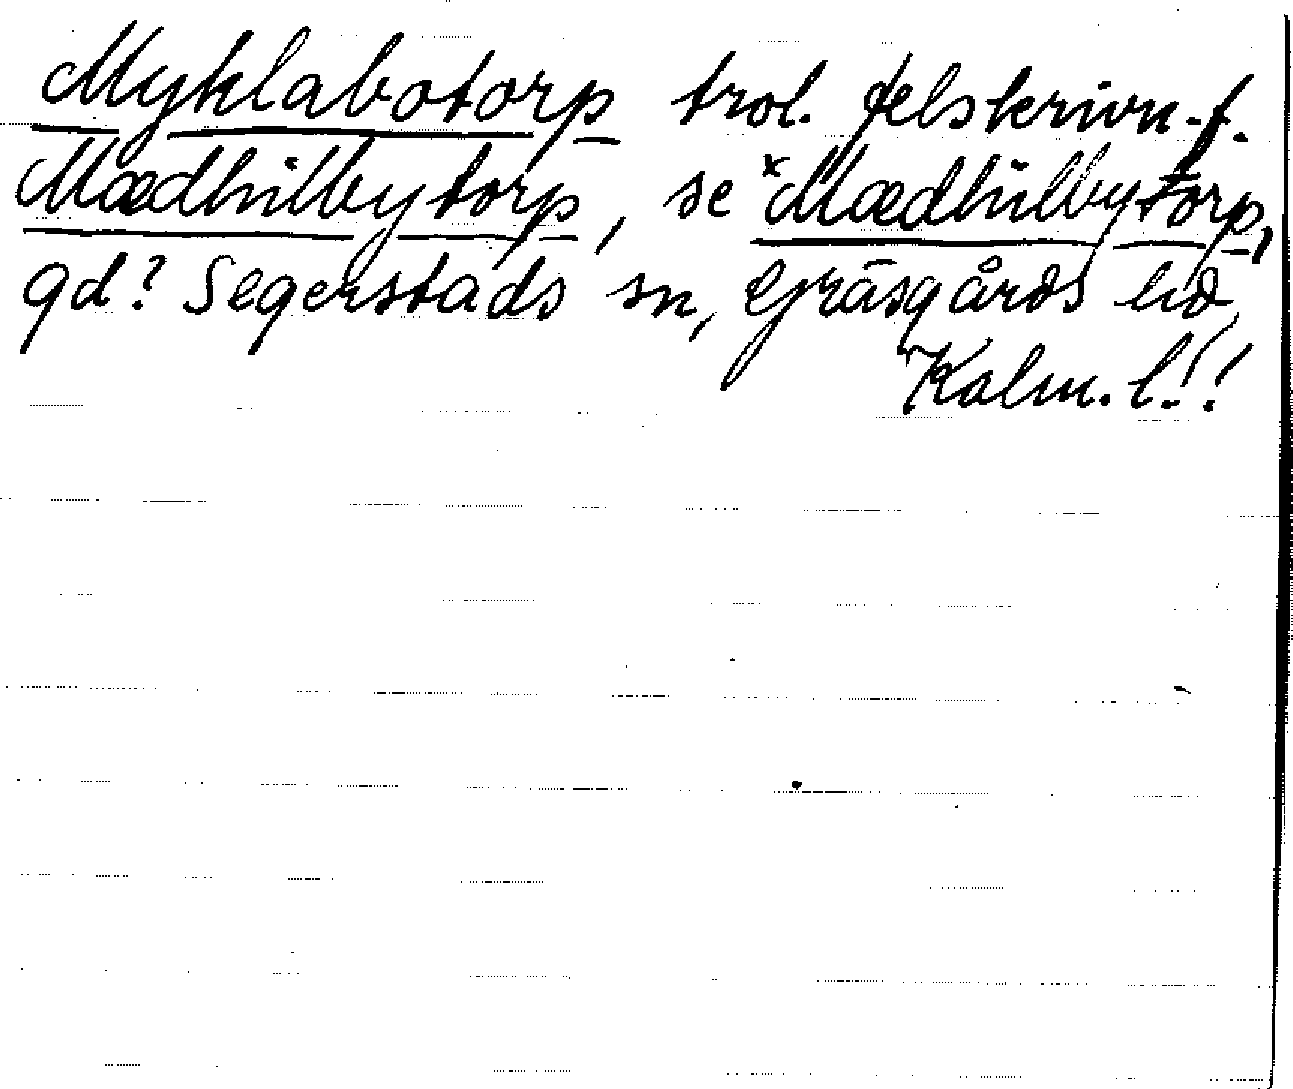 Myklabotorp trol. felskrivn. f.
Mædhilbytorp, se ˣMædhilbytorp,
gd? Segerstads sn, Gräsgårds hd,
Kalm. l.!!